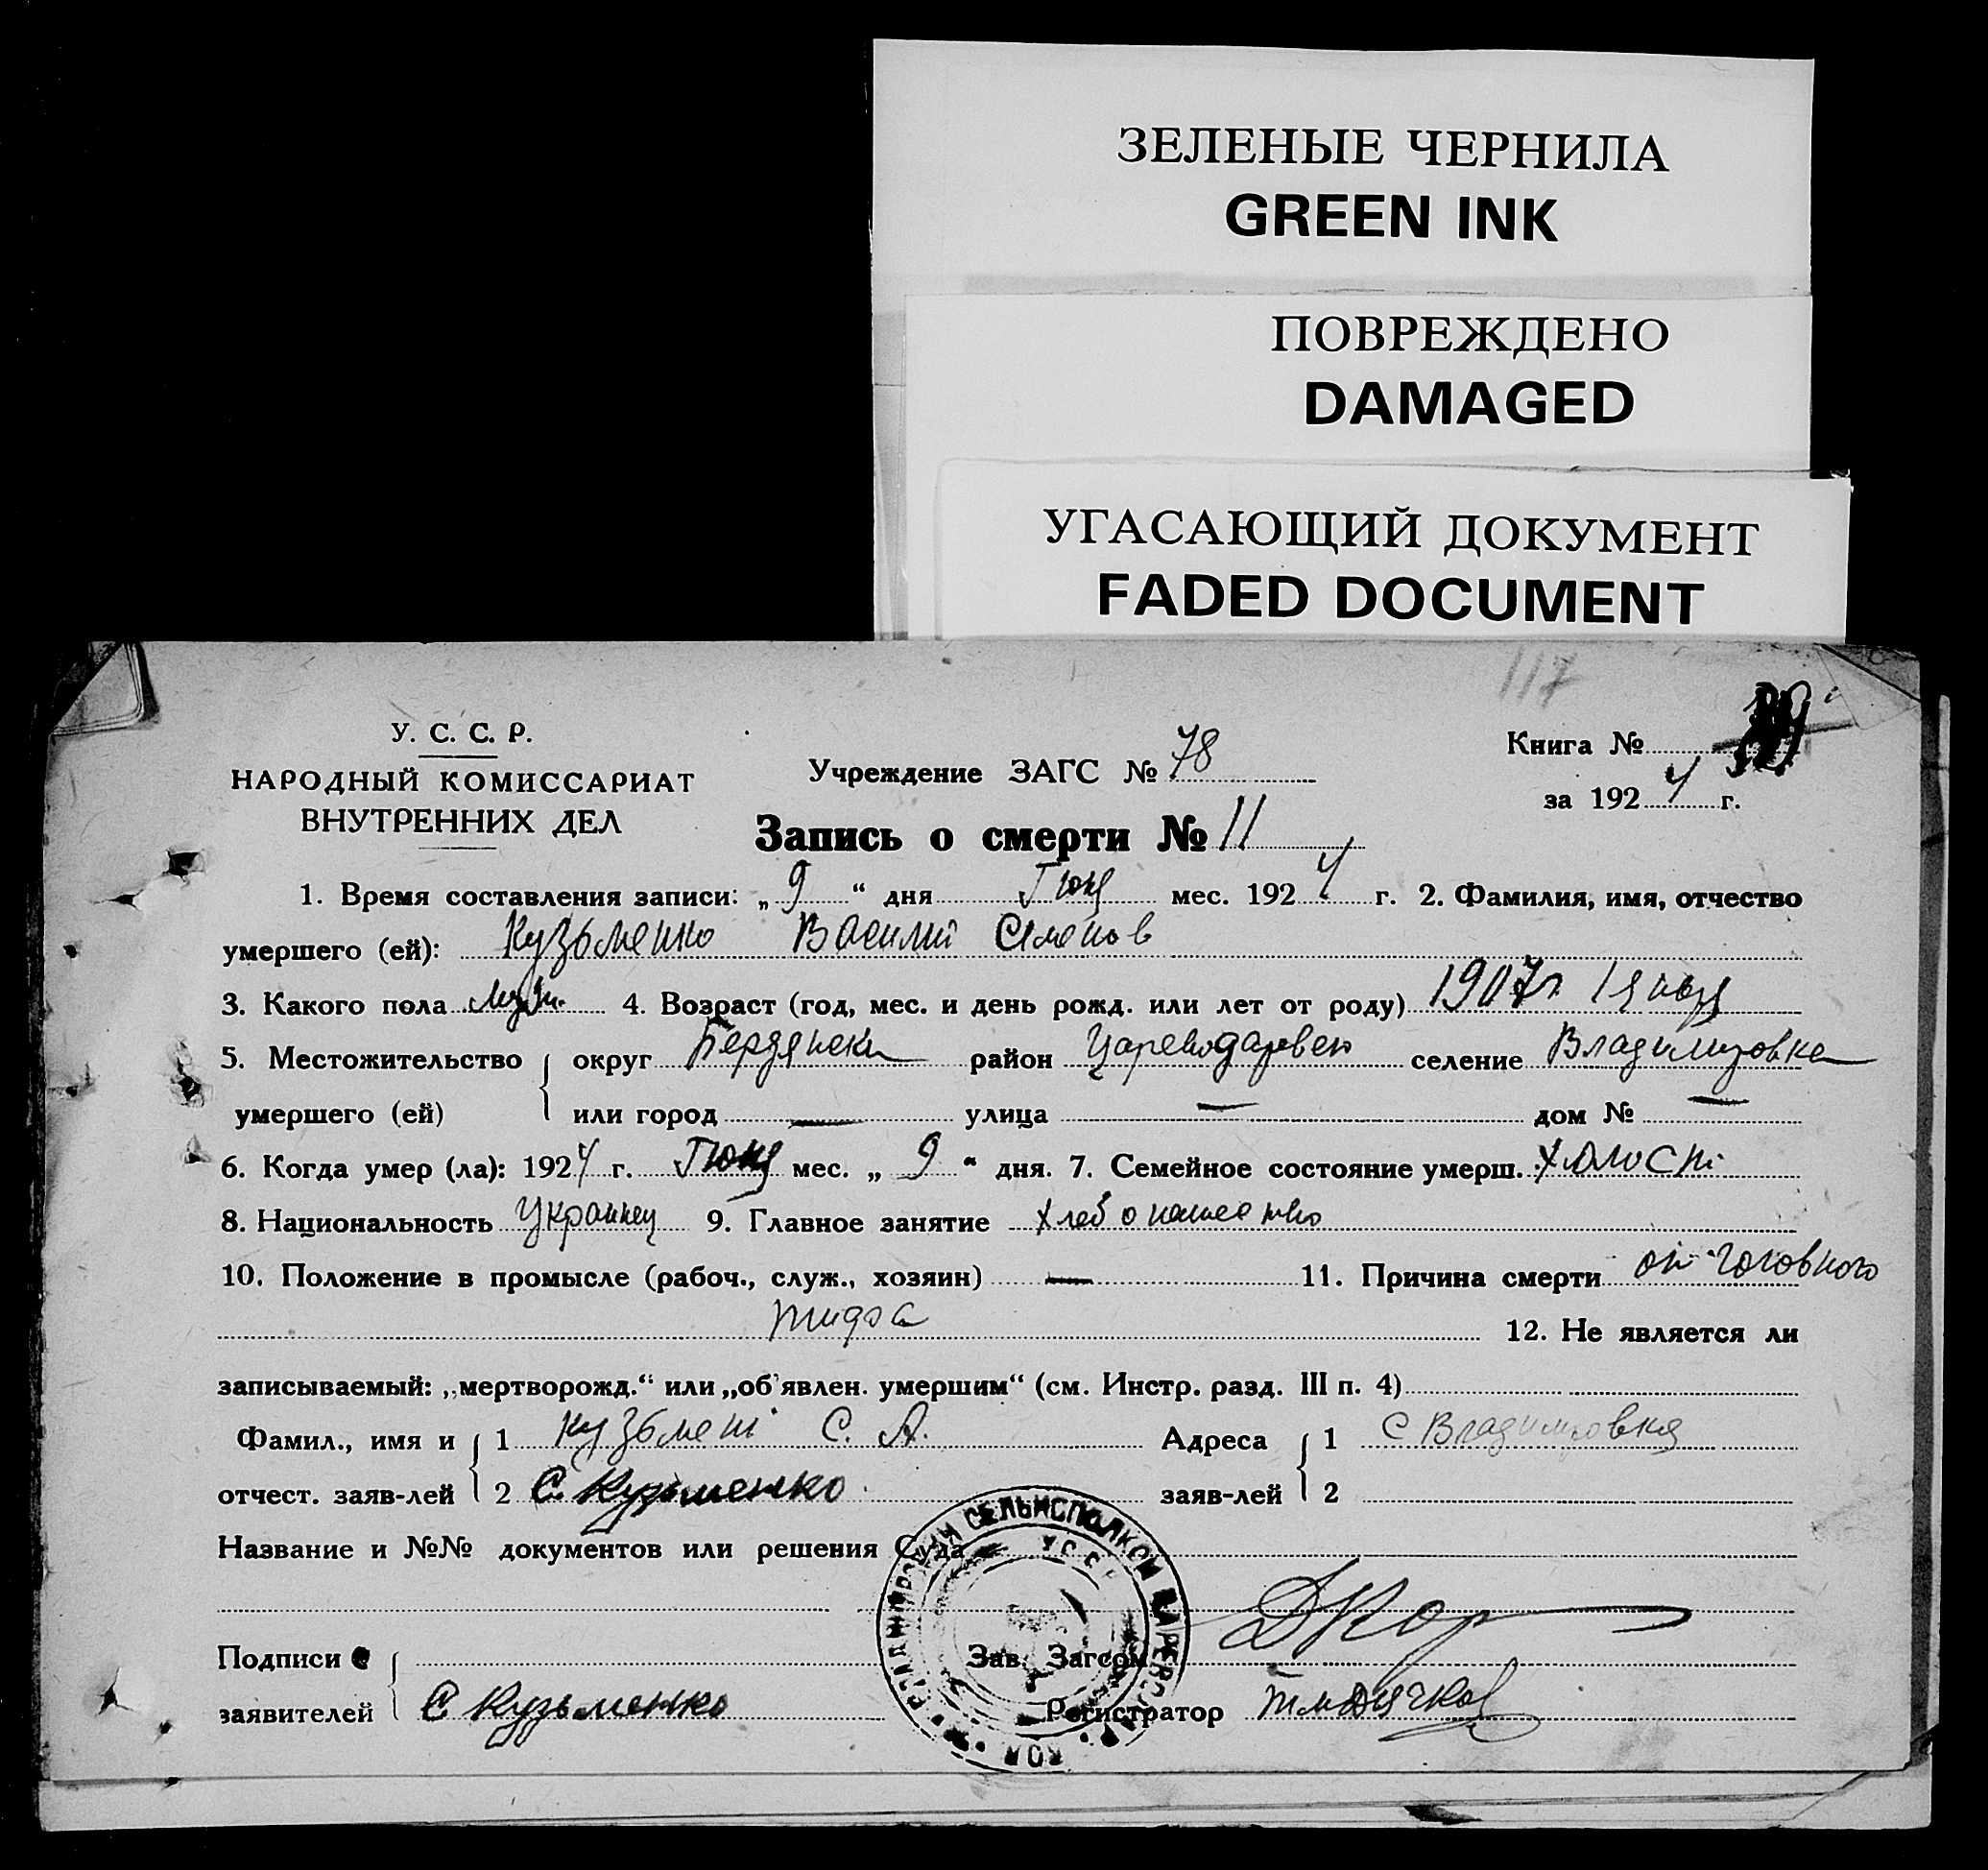 ЗЕЛЕНЫЕ ЧЕРНИЛА
GREEN INK
ПОВРЕЖДЕНО
DAMAGED
УГАСАЮЩИЙ ДОКУМЕНТ
FADED DOCUMENT
117
У. С. С. Р.
НАРОДНЫЙ КОМИССАРИАТ
ВНУТРЕННИХ ДЕЛ
Учреждение ЗАГС № 78
Книга №
за 1924 г.
Запись о смерти № 11
1. Время составления записи: „ 9 “ дня Июня мес. 1924 г. 2. Фамилия, имя, отчество
умершего (ей): Кузьменко Василий Семенов
3. Какого пола муж. 4. Возраст (год, мес. и день рожд. или лет от роду) 1907 г. 1 января
5. Местожительство округ Бердянски район Цареводаровск селение Владимировка
умершего (ей) или город — улица — дом № —
6. Когда умер (ла): 1924 г. Июня мес. „ 9 “ дня. 7. Семейное состояние умерш. холост
8. Национальность Украинец 9. Главное занятие хлебопашество
10. Положение в промысле (рабоч., служ., хозяин) — 11. Причина смерти от головного
тифа 12. Не является ли
записываемый: „мертворожд.“ или „об'явлен. умершим“ (см. Инстр. разд. III п. 4)
Фамил., имя и 1 С. А. Адреса 1 с Владимировка
отчест. заяв-лей 2 С. Кузьменко заяв-лей 2
Название и №№ документов или решения Суда
Подписи Зав. Загсом
заявителей С Кузьменко Регистратор
СЕЛЬИСПОЛКОМ
УССР